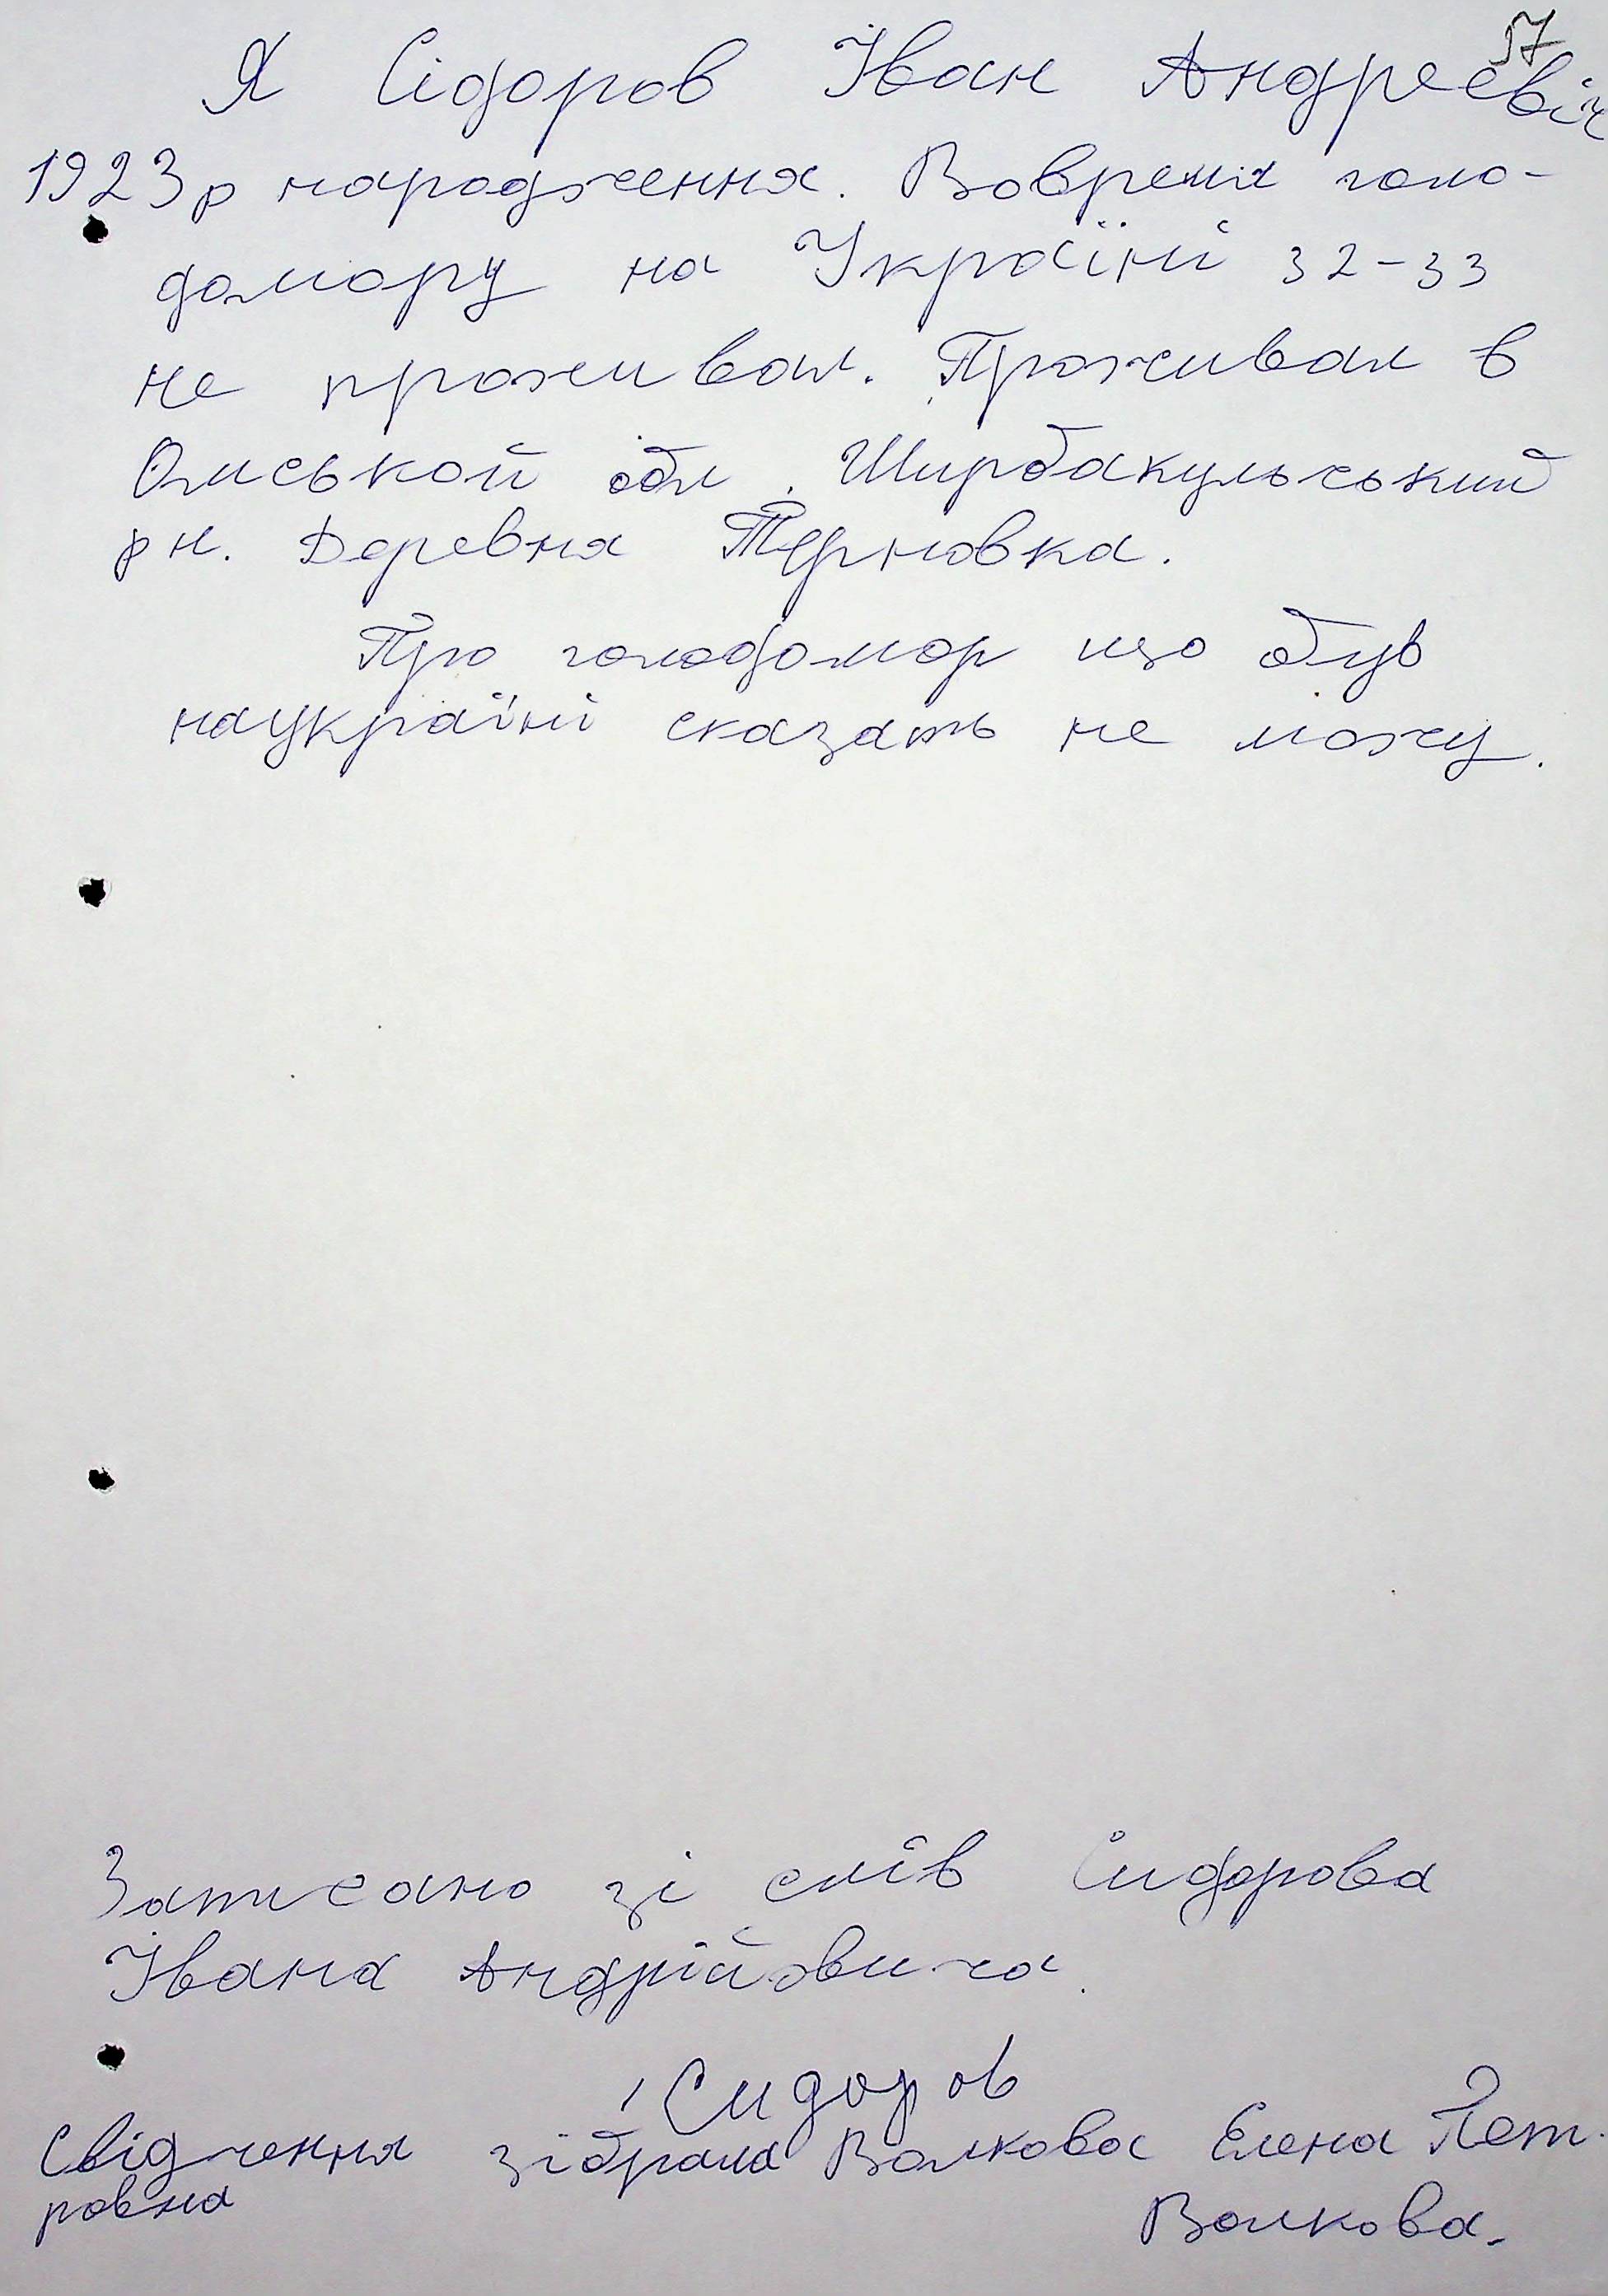 57
Я Сідоров Іван Андреевіч
1923р народження. Вовремя голо-
домору на Україні 32-33
не проживал. Проживал в
Омськой обл. Ширбакульський
рн. Деревня Терновка.
Про голодомор що був
наукраїні сказать не можу.
Записано зі слів Сидорова
Івана Андрійовича.
Сидоров
Свідчення зібрала Волкова Елена Пет-
ровна
Волкова.